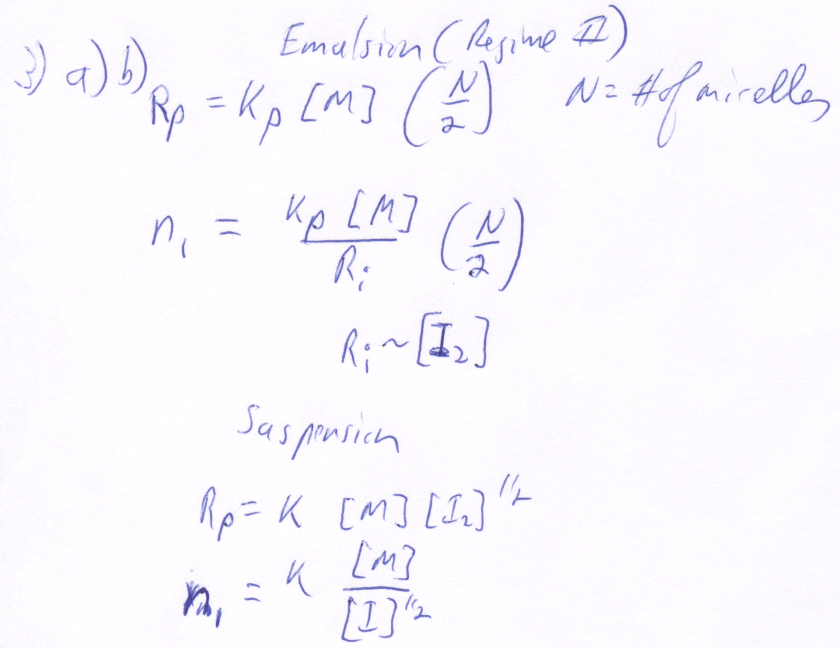 Emulsion (Regime II)
3) a) b) Rp = Kp [M] (N/2) N = # of micelles
n, = Kp [M] / Ri (N/2)
Ri ~ [I2]
Suspension
Rp = K [M] [I2]^1/2
n, = K [M] / [I]^1/2